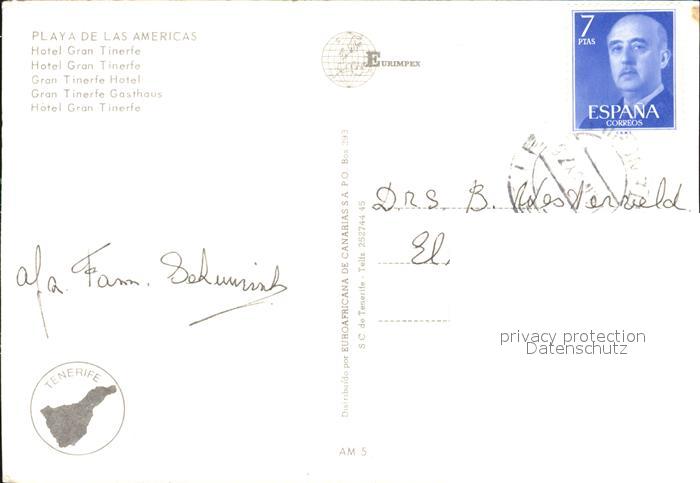 PLAYA DE LAS AMERICAS
Hotel Gran Tinerfe
Hotel Gran Tinerfe
Gran Tinerfe Hotel
Gran Tinerfe Gasthaus
Hôtel Gran Tinerfe
EURIMPEX
7
PTAS
ESPAÑA
CORREOS
Distribuido por EUROAFRICANA DE CANARIAS S.A. P.O. Box 293
S/C de Tenerife - Telfs 252744 45
DRS. B. Westerveld.
El.
afz. Fam.
TENERIFE
privacy protection
Datenschutz
AM 5